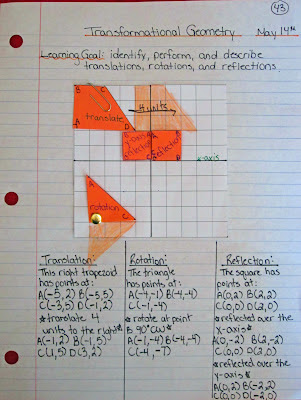 43
Transformational Geometry May 14th
Learning Goal: identify, perform, and describe
translations, rotations, and reflections.
B C
4 units
translate
A D
reflection
x-axis
A
rotation
B C
Translation:
This right trapezoid
has points at:
A(-5, 2) B(-5, 5)
C(-3, 5) D(-1, 2)
*translate 4
units to the right*
A(-1, 2) B(-1, 5)
C(1, 5) D(3, 2)
Rotation:
The triangle
has points at:
A(-4, -1) B(-4, -4)
(-1, -4)
*rotate at point
B 90° CW*
A(-1, -4) B(-4, -4)
C(-4, -7)
Reflection:
The square has
points at:
A(0, 2) B(2, 2)
C(0, 0) D(2, 0)
*reflected over the
x-axis*
A(0, -2) B(2, -2)
C(0, 0) D(2, 0)
*reflected over the
y-axis*
A(0, 2) B(-2, 2)
C(0, 0) D(-2, 0)